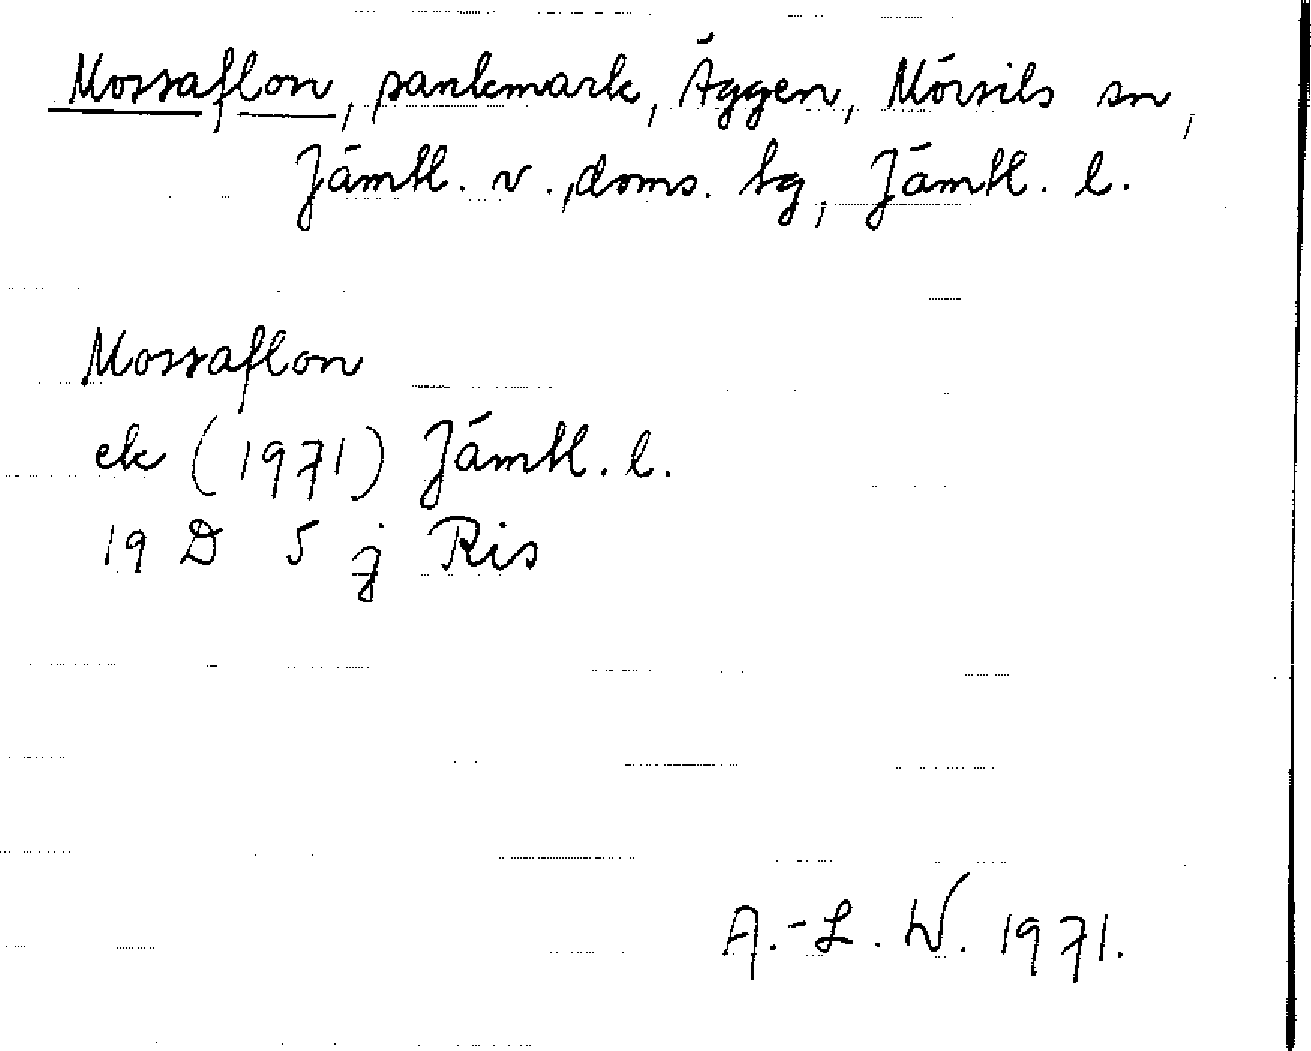 Mossaflon, sankmark, Äggen, Mörsils sn,
Jämtl. v., doms. tg, Jämtl. l.
Mossaflon
ek (1971) Jämtl. l.
19 D 5 j Ris
A.-L. W. 1971.